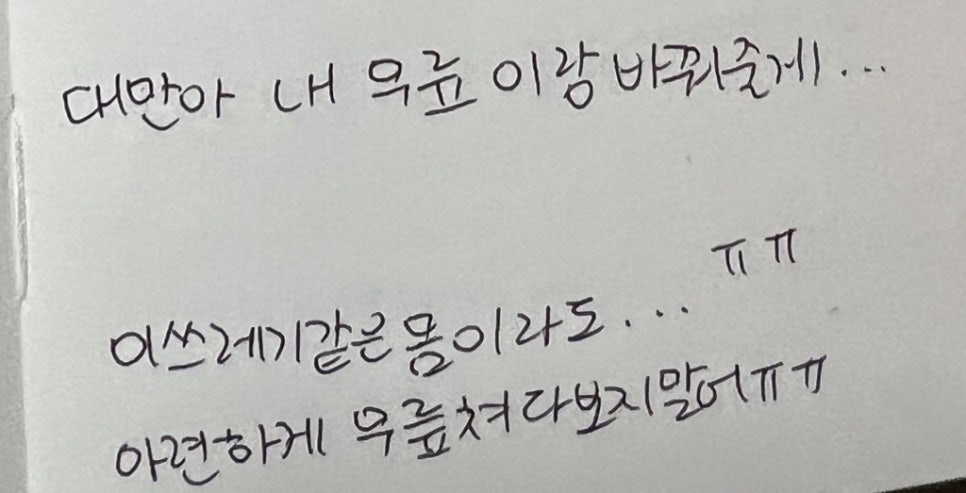 대만아 내 무릎 이랑 바꿔줄게...
ㅠㅠ
이쓰레기같은몸이라도...
아련하게 무릎쳐다보지말어ㅠㅠ